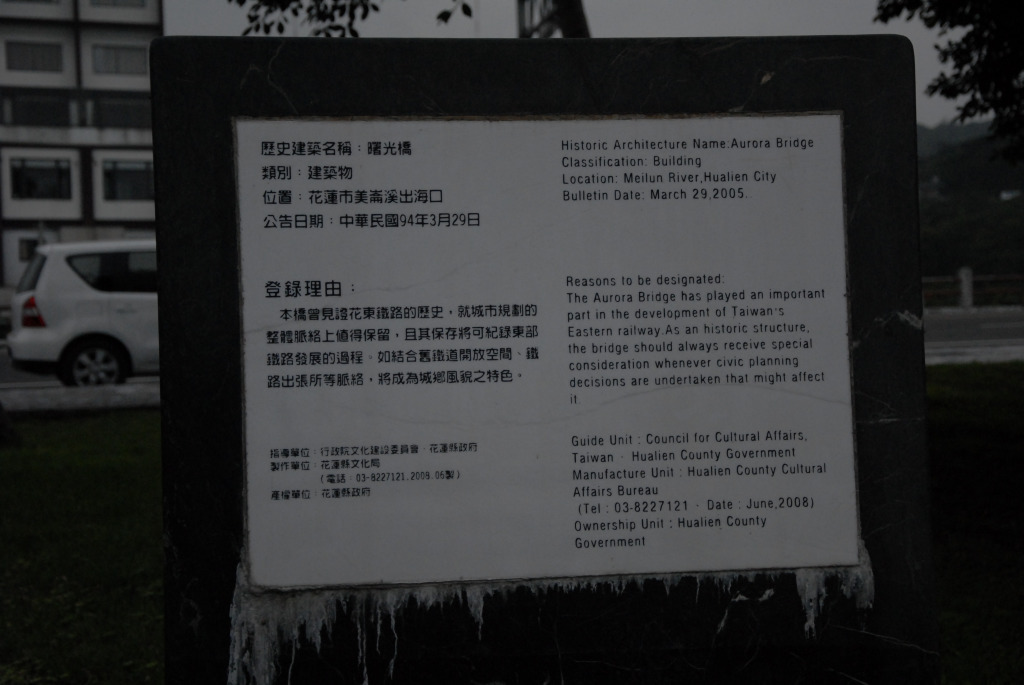 歷史建築名稱：曙光橋
類別：建築物
位置：花蓮市美崙溪出海口
公告日期：中華民國94年3月29日
登錄理由：
本橋曾見證花東鐵路的歷史，就城市規劃的
整體脈絡上值得保留，且其保存將可紀錄東部
鐵路發展的過程。如結合舊鐵道開放空間、鐵
路出張所等脈絡，將成為城鄉風貌之特色。
指導單位：行政院文化建設委員會‧花蓮縣政府
製作單位：花蓮縣文化局
（電話：03-8227121.2008.06製）
產權單位：花蓮縣政府
Historic Architecture Name:Aurora Bridge
Classification: Building
Location: Meilun River,Hualien City
Bulletin Date: March 29,2005.
Reasons to be designated:
The Aurora Bridge has played an important
part in the development of Taiwan's
Eastern railway.As an historic structure,
the bridge should always receive special
consideration whenever civic planning
decisions are undertaken that might affect
it.
Guide Unit : Council for Cultural Affairs,
Taiwan · Hualien County Government
Manufacture Unit : Hualien County Cultural
Affairs Bureau
(Tel : 03-8227121 · Date : June,2008)
Ownership Unit : Hualien County
Government